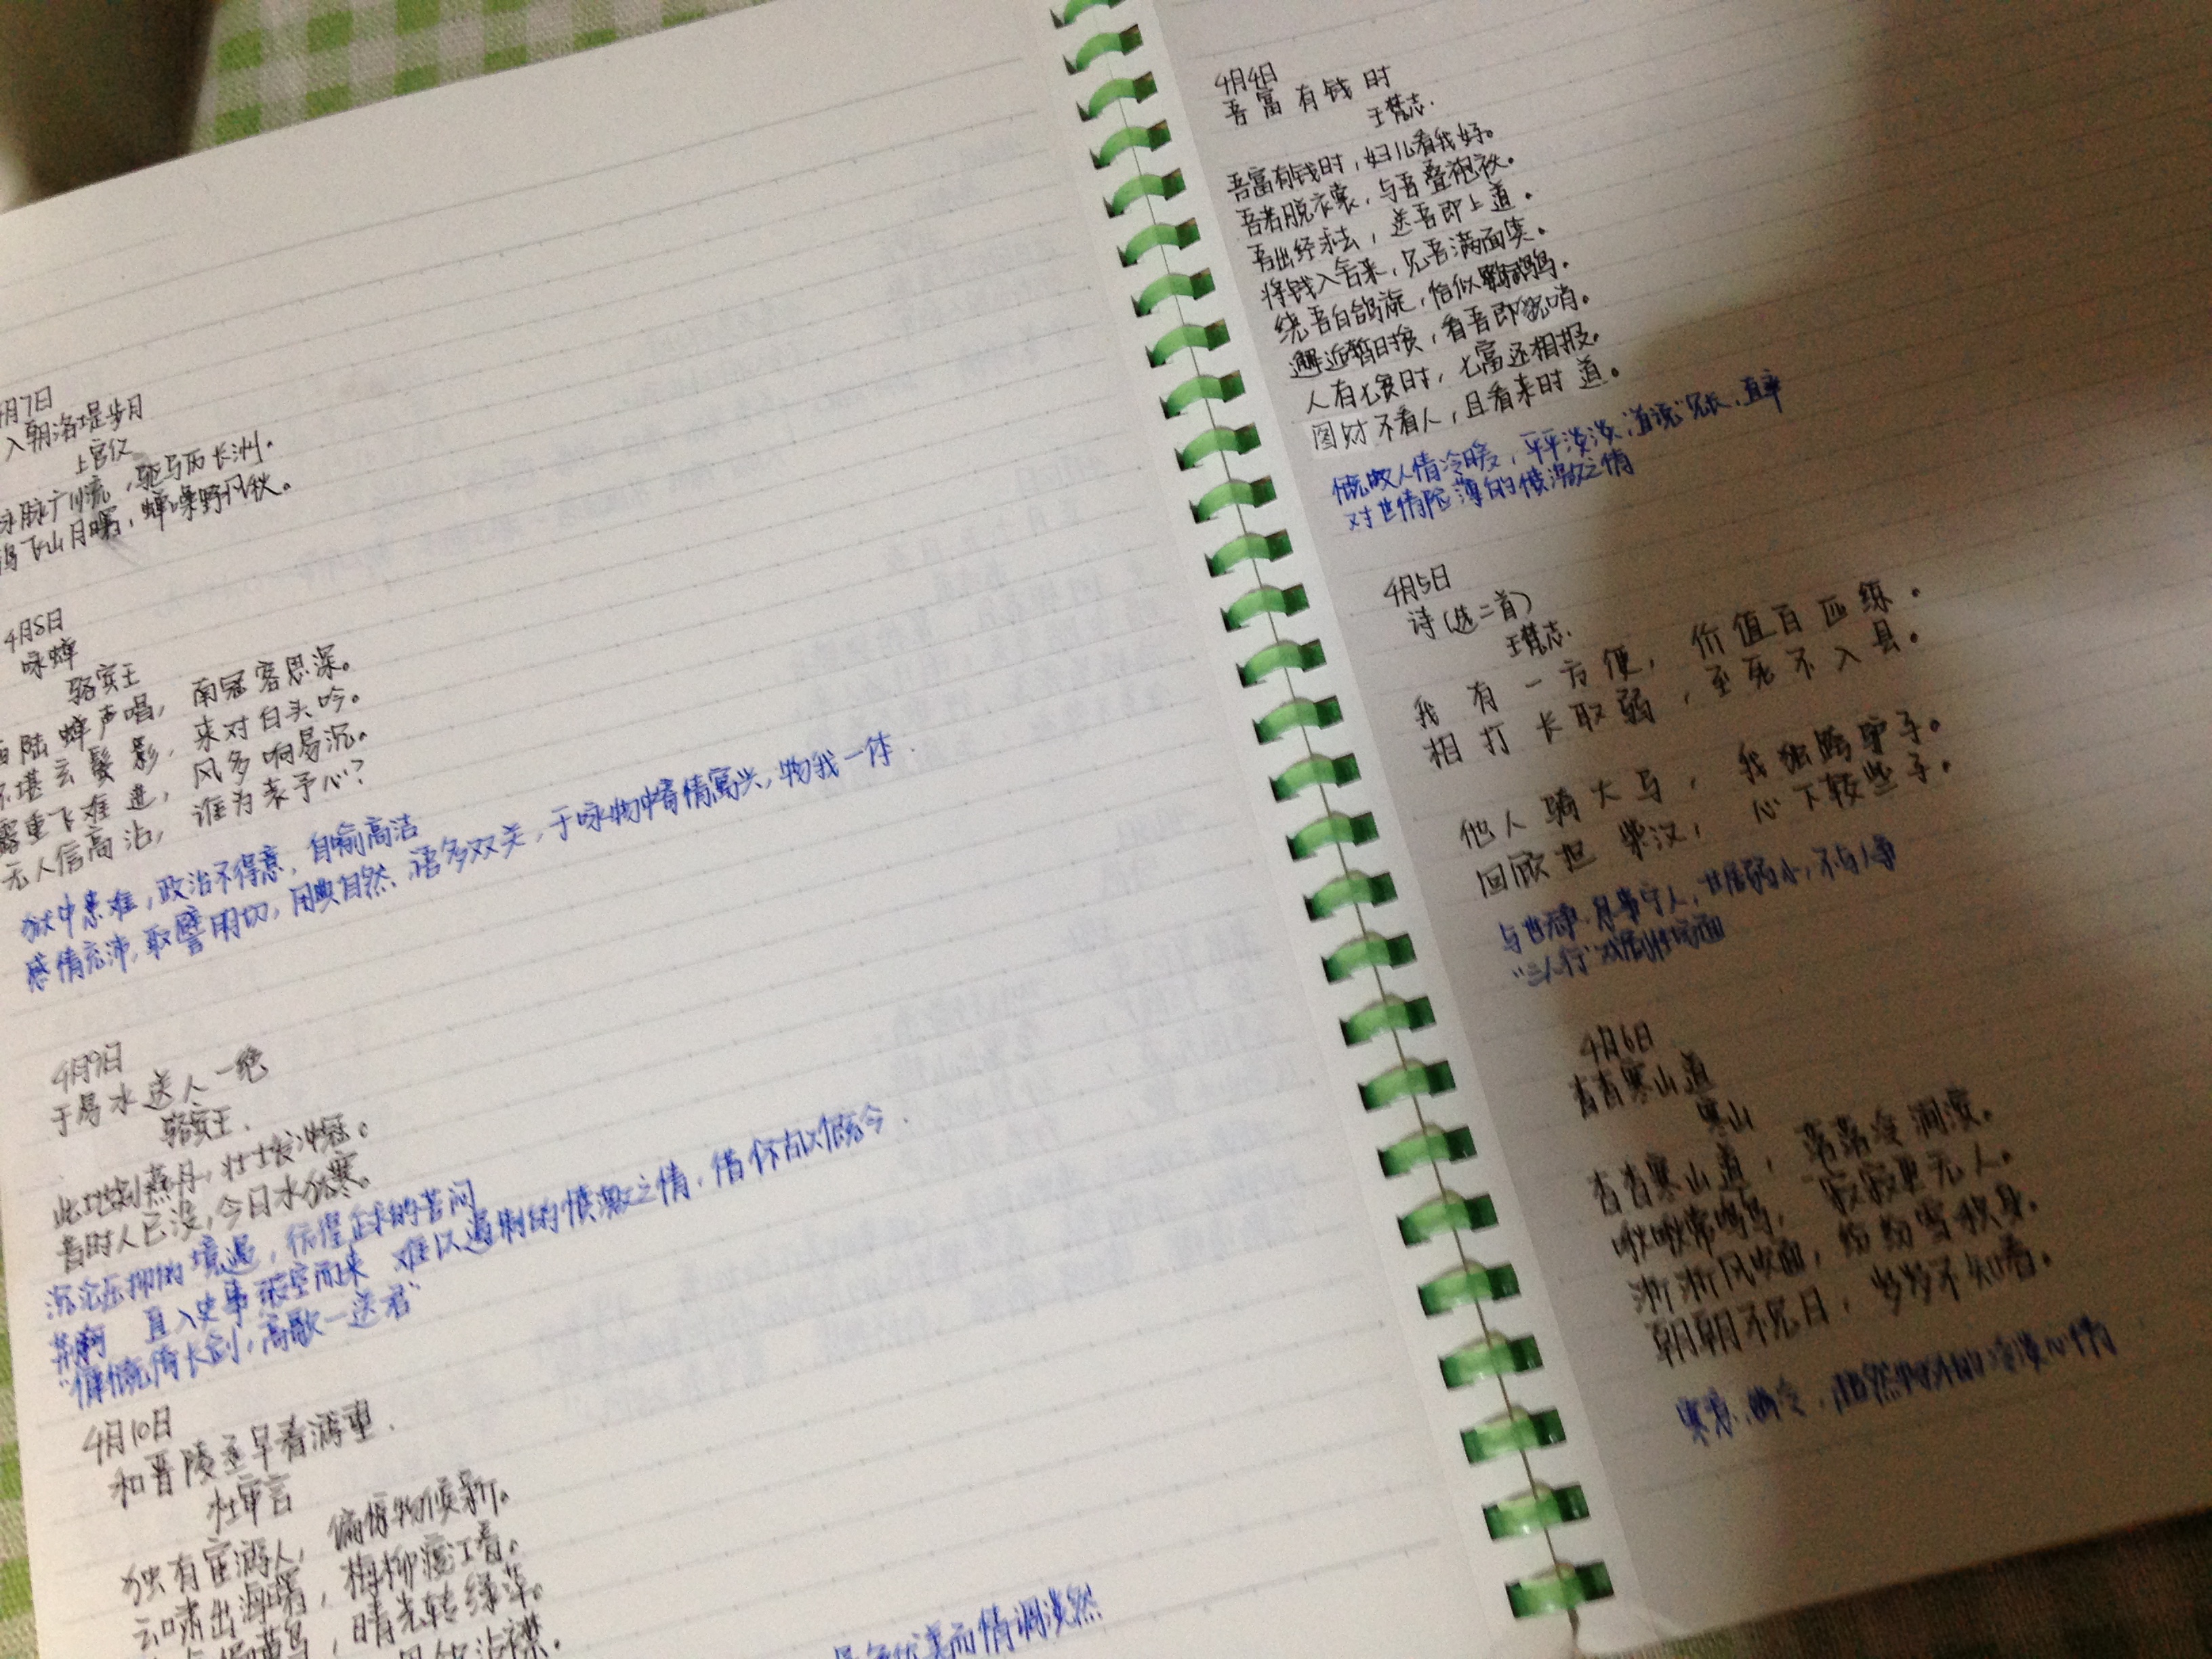 月7日
入朝洛堤步月
上官仪
脉脉广川流，驱马历长洲。
飞山月曙，蝉噪野风秋。
4月8日
咏蝉
骆宾王
西陆蝉声唱，南冠客思深。
不堪玄鬓影，来对白头吟。
露重飞难进，风多响易沉。
无人信高洁，谁为表予心？
狱中患难，政治不得意，自喻高洁
感情充沛，取譬明切，用典自然、语多双关，于咏物中寄情寓兴，物我一体．
4月9日
于易水送人一绝
骆宾王．
此地别燕丹，壮士发冲冠。
昔时人已没，今日水犹寒。
沉沦压抑的境遇，彷徨企求的苦闷
荆轲 直入史事 破空而来 难以遏制的愤激之情，借怀古以慨今．
“慷慨倚长剑，高歌一送君”
4月10日
和晋陵丞早春游．
杜审言
独有宦游人，偏惊物候新。
云出海曙，梅柳渡江春。
，晴光转绿苹。
沾襟。
而情调淡然
4月4日
吾富有钱时
王梵志．
吾富有钱时，妇儿看我好。
吾若脱衣裳，与吾叠袍袄。
吾出经求去，送吾即上道。
将钱入舍来，见吾满面笑。
绕吾白鸽旋，恰似鹦鹉鸟。
邂逅暂时贫，看吾即貌哨。
人有七贫时，七富还相报。
图财不看人，且看来时道。
慨叹人情冷暖，平平淡淡，道，直率
对世情险薄的愤激之情
4月5日
诗（选二首）
王梵志．
我有一方便，价值百匹练．
相打长取弱，至死不入县。
他人骑大马，我独跨驴子。
回顾担柴汉，心下较些子。
与世无争，息事宁人，甘居弱小，不与人争
“三人行”戏剧性场面
4月6日
杳杳寒山道
寒山
杳杳寒山道，落落冷涧滨。
啾啾常鸣鸟，寂寂更无人。
淅淅风吹面，纷纷雪积身。
朝朝不见日，岁岁不知春。
寒，幽冷，超然物外的冷淡心情